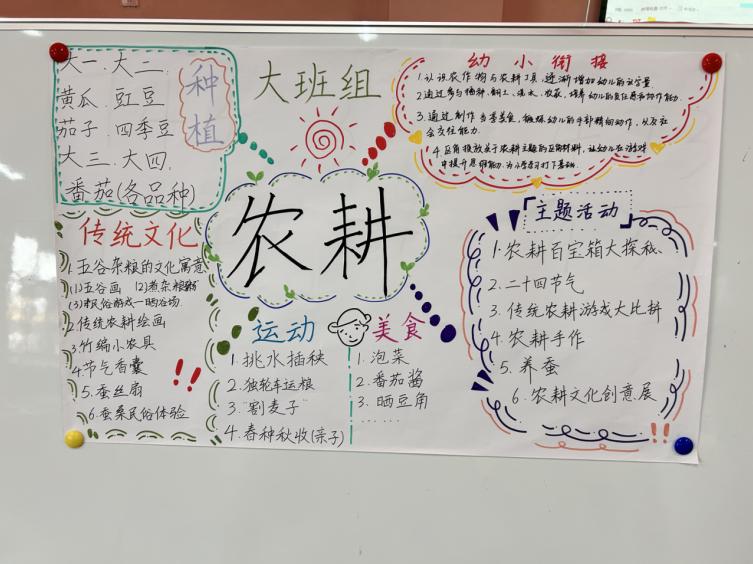 大一、大二
黄瓜 豇豆
茄子 四季豆
大三、大四
番茄(各品种)
种植
大班组
农耕
幼小衔接
1.认识农作物与农耕工具,逐渐增加幼儿的识字量.
2.通过参与播种、翻土、浇水、收获,培养幼儿的责任感和协作能力.
3.通过制作当季美食,锻炼幼儿的手部精细动作,以及社
会交往能力.
4.区角投放关于农耕主题的区角材料,让幼儿在游戏
中提升思维能力,为小学学习打下基础.
传统文化
1.五谷杂粮的文化寓意
(1)五谷画 (2)煮杂粮粥
(3)民俗游戏—晒谷场
2.传统农耕绘画
3.竹编小农具
4.节气香囊
5.蚕丝扇
6.蚕桑民俗体验
运动
1.挑水插秧
2.独轮车运粮
3."割麦子"
4.春种秋收(亲子)
美食
1.泡菜
2.番茄酱
3.晒豆角
......
主题活动
1.农耕百宝箱大探秘、
2.二十四节气
3.传统农耕游戏大比拼
4.农耕手作
5.养蚕
6.农耕文化创意展